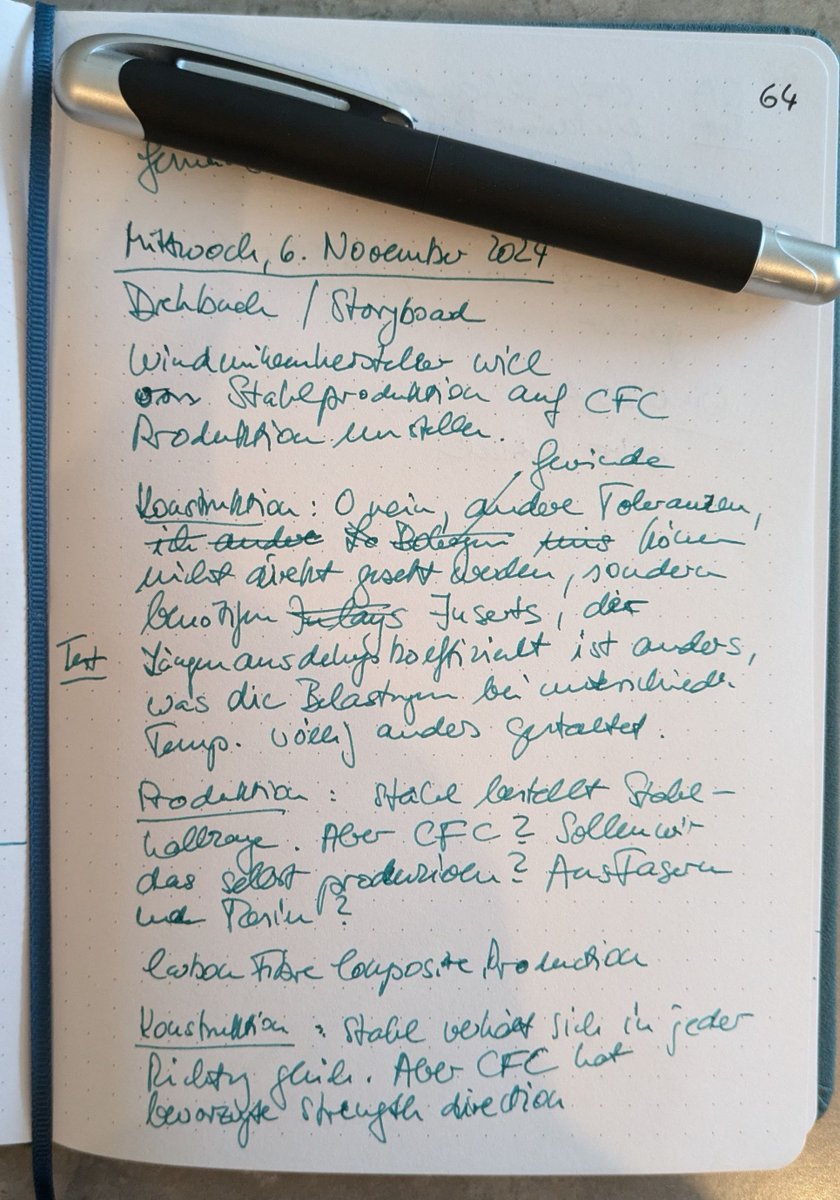 64
Mittwoch, 6. November 2024
Drehbuch / Storyboad
Windmühlenhersteller will
von Stahlproduktion auf CFC
Produktion umstellen.
Gewinde
Konstruktion: O nein, andere Toleranzen,
ich andere können
nicht direkt gesetzt werden, sondern
benötigen Inlays Inserts, der
Test Längenausdehngskoeffizient ist anders,
was die Belastungen bei unterschiedl.
Temp. völlig anders gestaltet.
Produktion: Stahl bestellt Stahl-
. Aber CFC? Sollen wir
das selbst produzieren? Aus Fasern
und Resin?
Carbon Fibre Composite Production
Konstruktion: Stahl verhält sich in jeder
Richtung gleich. Aber CFC hat
bevorzugte strength direction